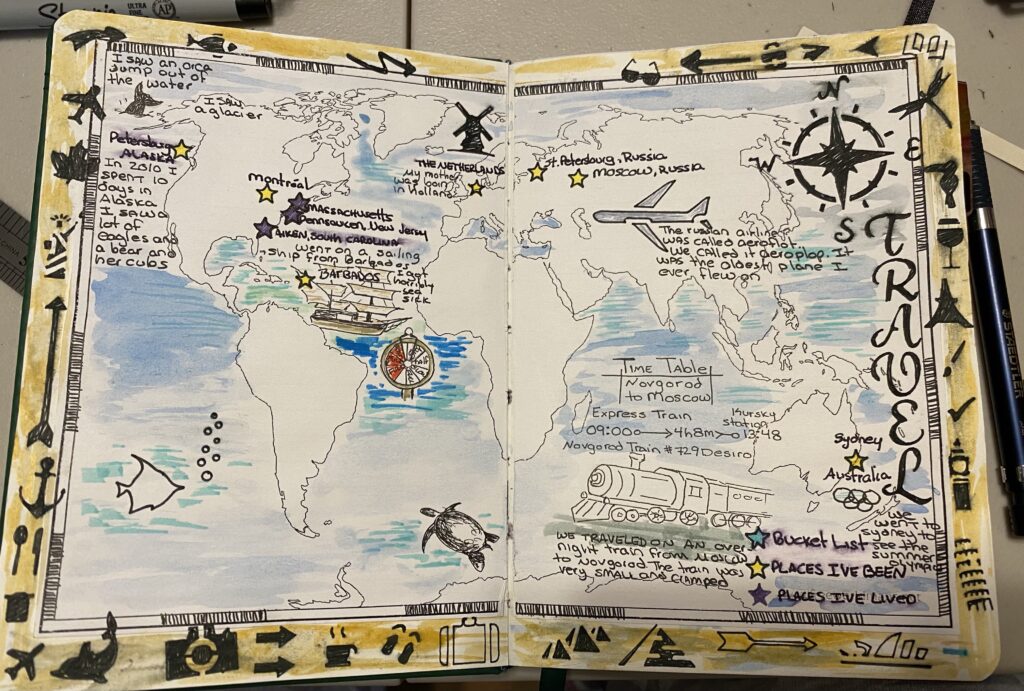 Sharpie
ULTRA
FINE
AP
I SAW AN ORCA
JUMP OUT OF
the WATER
I SAW
a glacier
Petersburg
ALASKA
IN 2010 I
SPENT 10
days in
Alaska
I SAW A
LOT OF
Eagles and
a bear and
her cubs
Montréal
MASSACHUSETTS
Pennsauken, New Jersey
AIKEN, SOUTH CAROLINA
went on a sailing
ship from Barbados
I got
horribly
sea
sick
BARBADOS
THE NETHERLANDS
My mother
was born
in Holland
St. Petersburg, Russia
MOSCOW, RUSSIA
The russian airliner
was called aeroflot.
we called it aeroplop. It
was the oldest plane I
ever flew on
N
W
E
S
TRAVEL
TIME TABLE
Novgorod
to Moscow
Express Train
Kursky
station
09:00 4h8m 13:48
Novgorod Train #729 Desiro
Sydney
Australia
we
went to
Sydney to
see the
summer
olympics
WE TRAVELED ON AN OVER
night train from MOSCOW
to NOVGOROD The train was
very small and cramped
Bucket List
PLACES I'VE BEEN
PLACES I'VE LIVED
STAEDTLER